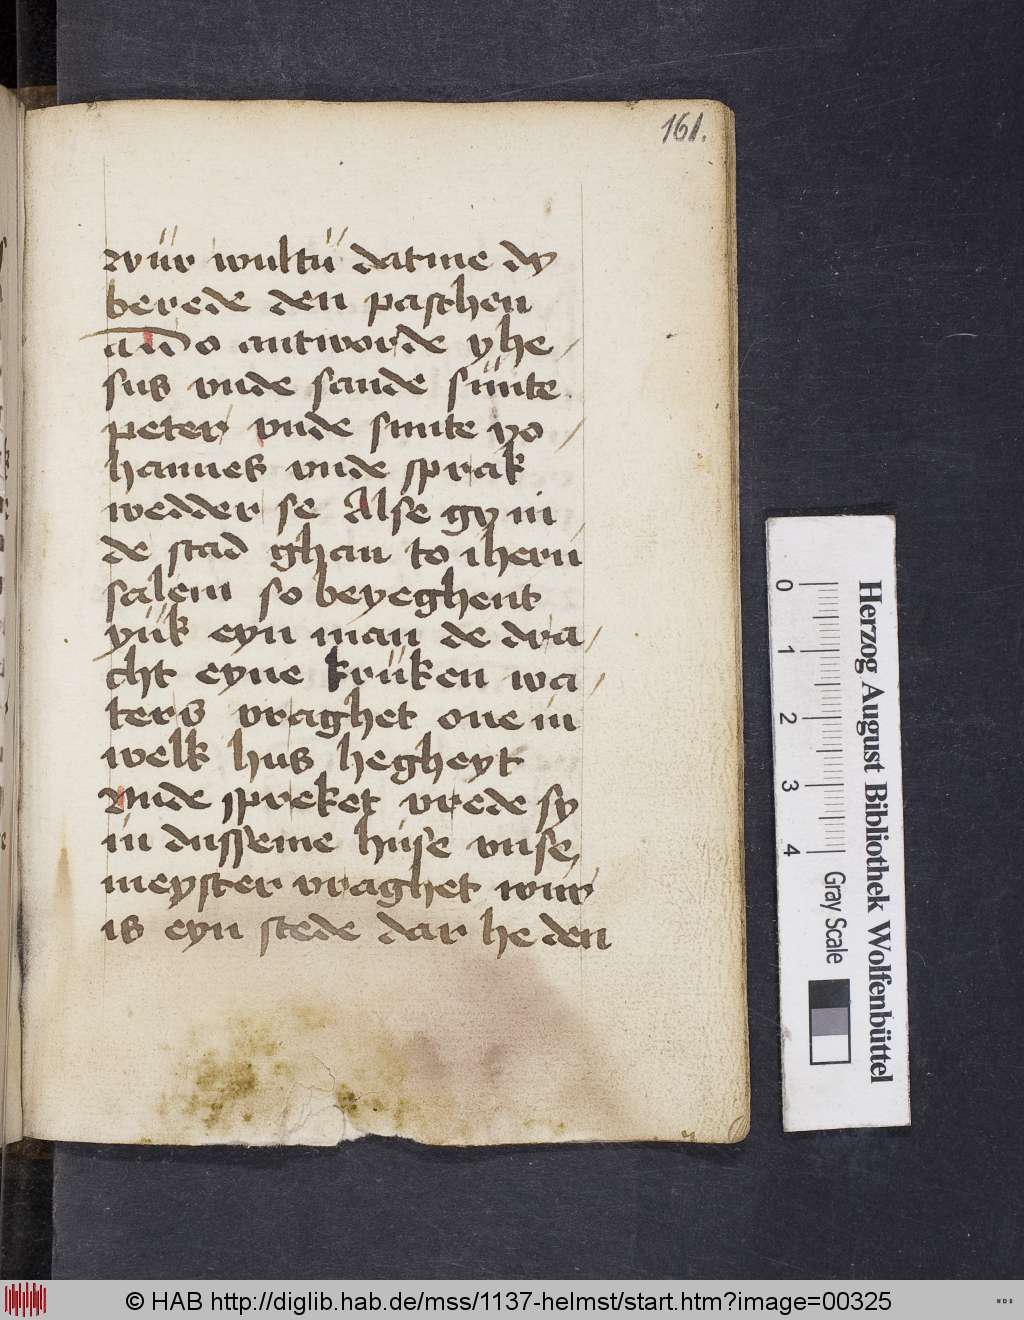 161.
wür wultü datme dy
berede den paschen
also antworde yhe/
sus vnde sande sünte
peter vnde sunte yo/
hannes vnde sprak
wedder se Alse gy in
de stad ghan to iheru
salem so beyeghent
yük eyn man de dra/
cht eyne krüken wa/
ters vraghet one in
welk hus he gheyt
Vnde spreket vrede sy
in dusseme huse vnse,
meyster vraghet wur
is eyn stede dar he den
0 1 2 3 4
Gray Scale
Herzog August Bibliothek Wolfenbüttel
© HAB http://diglib.hab.de/mss/1137-helmst/start.htm?image=00325